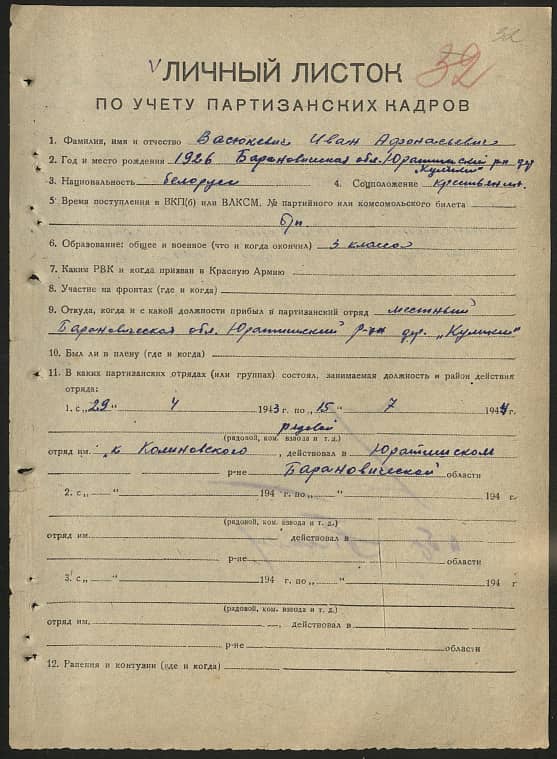 32
32
ЛИЧНЫЙ ЛИСТОК
ПО УЧЕТУ ПАРТИЗАНСКИХ КАДРОВ
1. Фамилия, имя и отчество Васюкевич Иван Афонасьевич
2. Год и место рождения 1926 Барановичская обл. Юратишский р-н дер.
"Кулики"
3. Национальность белорус 4. Соцположение крестьянин
5. Время поступления в ВКП(б) или ВЛКСМ, № партийного или комсомольского билета
б/п
6. Образование: общее и военное (что и когда окончил) 3 класса
7. Каким РВК и когда призван в Красную Армию
8. Участие на фронтах (где и когда)
9. Откуда, когда и с какой должности прибыл в партизанский отряд местный
Барановичская обл. Юратишский р-он дер. "Кулики"
10. Был ли в плену (где и когда)
11. В каких партизанских отрядах (или группах) состоял, занимаемая должность и район действия
отряда:
1. с „29" 4 1943 г. по „15" 7 1944 г.
рядовой
(рядовой, ком. взвода и т. д.)
отряд им. "К Калиновского, действовал в Юратишском
р-не Барановической области
2. с „ " 194 г. по „ " 194 г.
(рядовой, ком. взвода и т. д.)
отряд им. действовал в
р-не области
3. с „ " 194 г. по „ " 194 г.
(рядовой, ком. взвода и т. д.)
отряд им. , действовал в
р-не области
12. Ранения и контузии (где и когда)